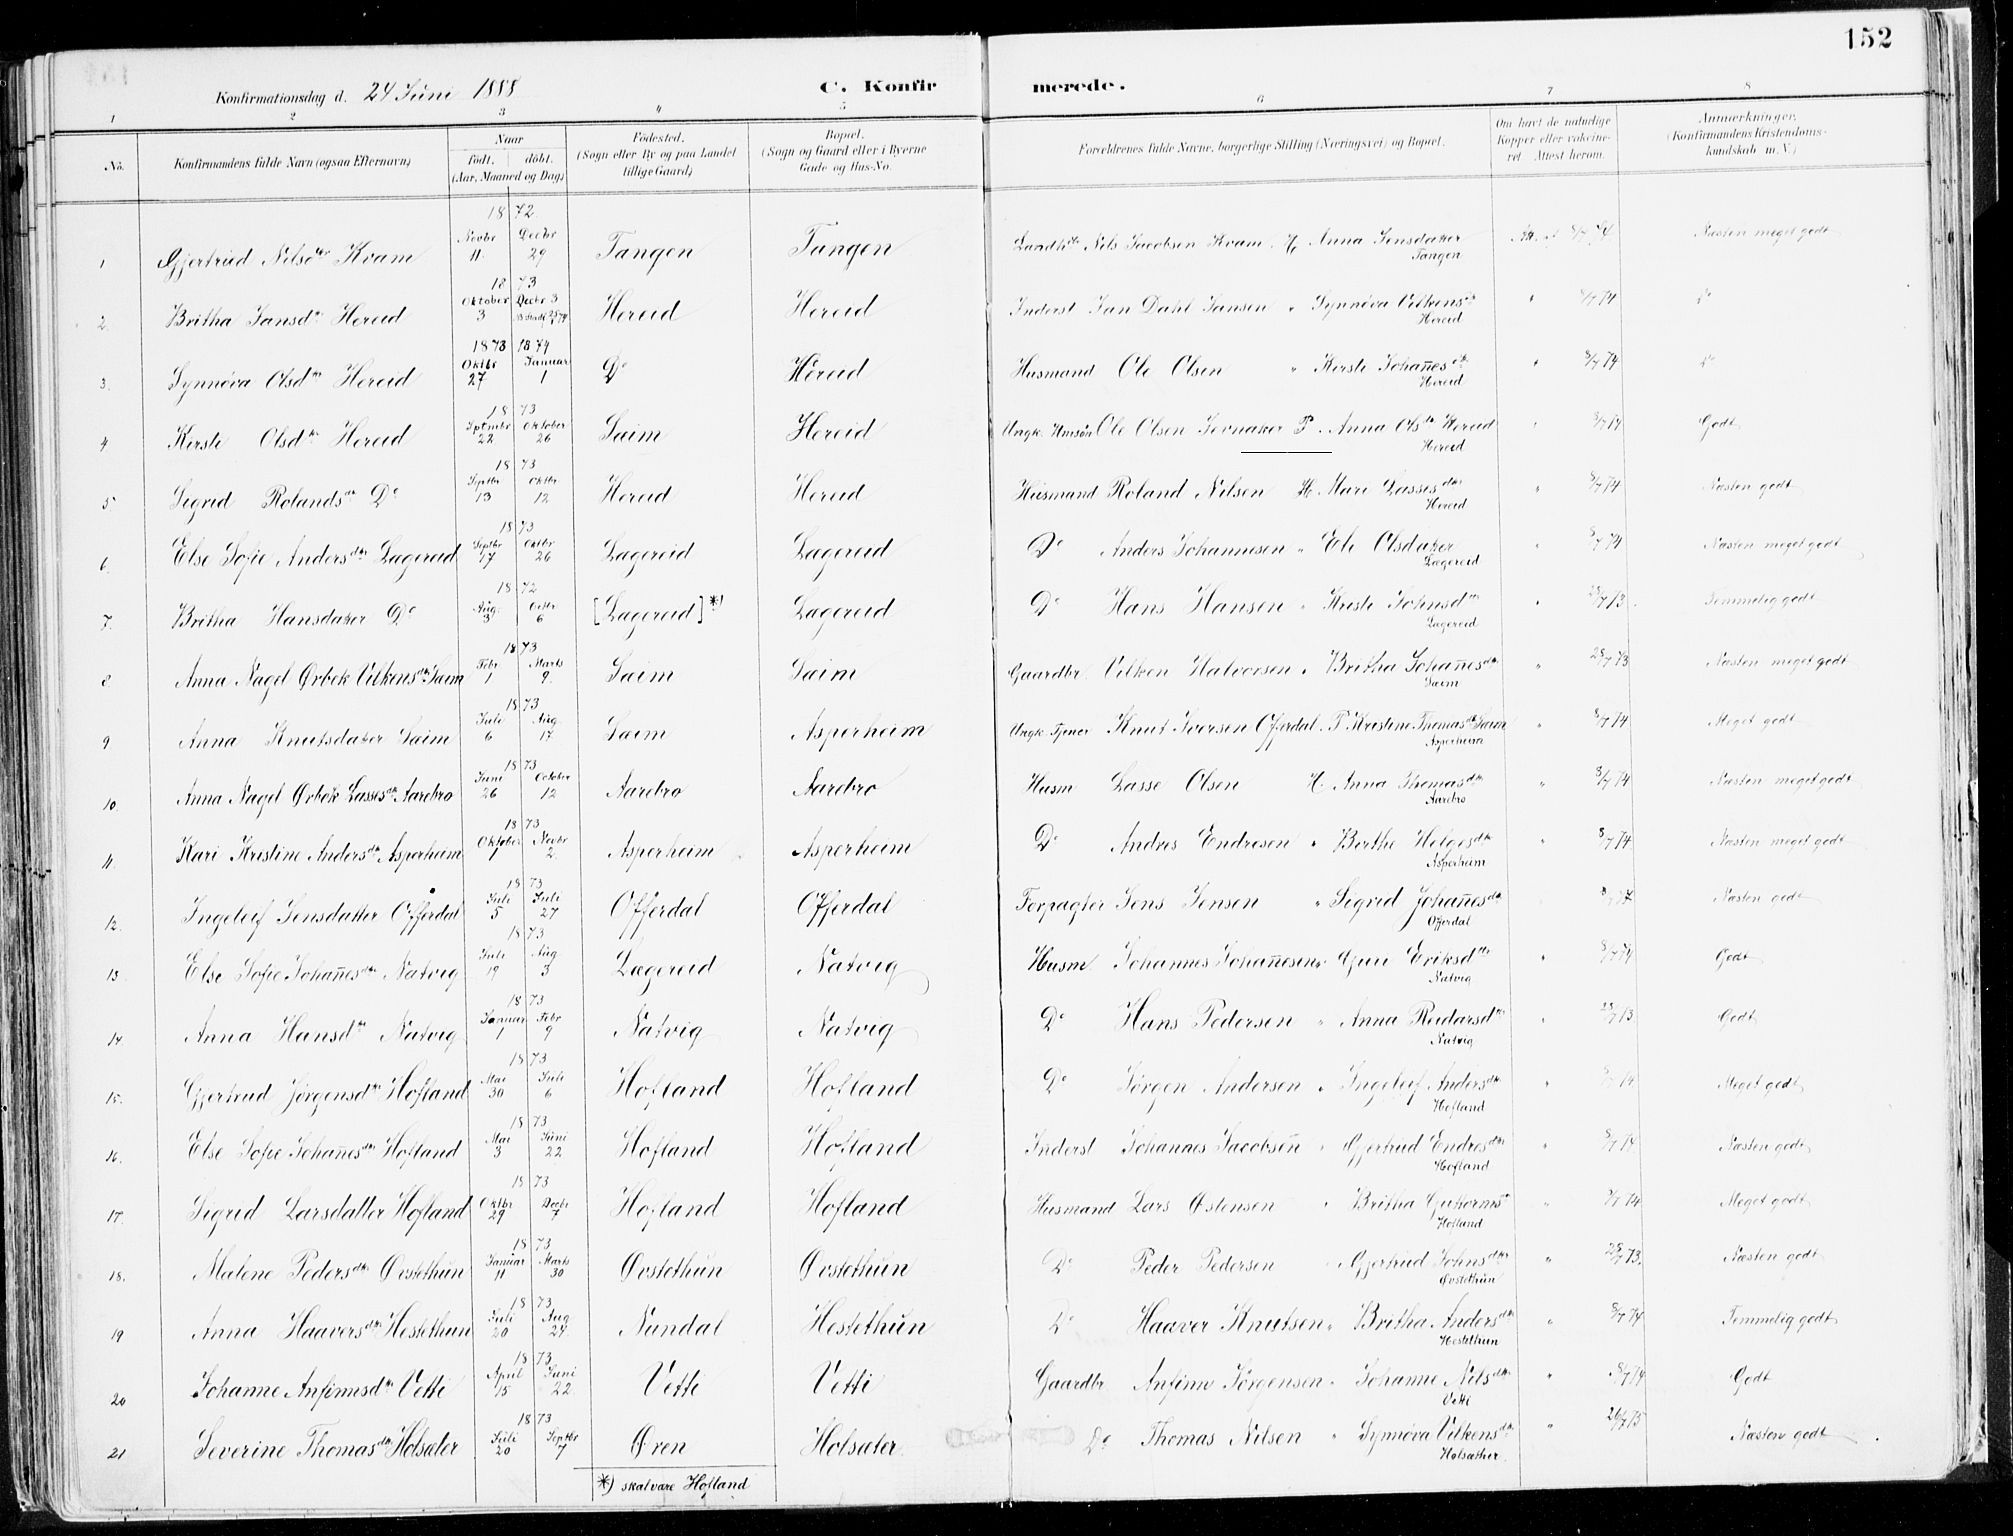 152
Konfirmationsdag d. 24 Juni 1888 C. Konfir merede.
1 2 3 4 5 6 7 8
No. Konfirmandens fulde Navn (ogsaa Efternavn) Naar født. døbt. (Aar, Maaned og Dag) Fødested. (Sogn eller By og paa Landet tillige Gaard) Bopæl. (Sogn og Gaard eller i Byerne Gade og Hus-No. Forældrenes fulde Navne, borgerlige Stilling (Næringsvei) og Bopæl. Om havt de naturlige Kopper eller vakcineret. Attest herom. Anmærkninger, (Konfirmandens Kristendomskundskab m. V.)
1 Gjertrud Nilsdtr Kvam 1872 Novbr 11 Decbr 29 Tangen Tangen Nils Jacobsen Kvam H. Anna Jensdatter Tangen Næsten meget godt
2. Britha Jansdtr Hereid 1873 Oktober 3 Decbr 3 Hereid Hereid Inderst Jan Dahl Jansen " Synnøva Vilkensdtr Hereid " 8/7 74 Do
3. Synnøva Olsdtr Hereid 1873 1874 Oktbr 27 Januar 1 Do Hereid Husmand Ole Olsen " Kersti Johañesdtr Hereid " 8/7 74 Do
4 Kirsti Olsdtr Hereid 1873 Sptmbr 22 Oktober 26 Saim Hereid Ungk. Ole Olsen Jevnaker P. Anna Olsdtr Hereid Hereid " 8/7 74 Godt
5 Sigrid Rolandsdtr Do 1873 Septbr 13 Oktbr 12 Hereid Hereid Husmand Roland Nilsen H. Mari Lassesdtr Hereid " 8/7 74 Næsten godt
6. Else Sofie Andersdtr Lægereid 1873 Septbr 17 Oktbr 26 Lægereid Lægereid Do Anders Johannesen " Eli Olsdatter Lægereid " 8/7 74 Næsten meget godt
7. Britha Hansdatter Do 1872 Aug. 3 Octbr 6 [Lægereid]*) Lægereid Do Hans Hansen " Kristi Johnsdtr Lægereid " 28/7 73. Temmelig godt
8. Anna Nagel Ørbek Vilkensdtr Saim 1873 Febr 1 Marts 9. Saim Saim Gaardbr. Vilken Halvorsen " Britha Johañesdtr Saim " 28/7 73 Næsten meget godt
9 Anna Knutsdatter Saim 1873 Juli 6 Aug. 17 Saim Asperheim Ungk. Tjener Knut Iversen Offerdal. P. Kristine Thomasdtr Saim Asperheim " 8/7 74 Meget godt
10 Anna Nagel Ørbek Lassesdtr Aarebro 1873 Juni 26 October 12 Aarebro Aarebro Husm Lasse Olsen H. Anna Thomasdtr Aarebro " 8/7 74 Næsten meget godt
11. Kari Kristine Andersdtr Asperheim 1873 Oktober 1 Novbr 2 Asperheim Asperheim Do Andres Endresen " Berthe Helgesdtr Asperheim " 8/7 74 Næsten meget godt
12. Ingeleif Jensdatter Offerdal 1873 Juli 5 Juli 27 Offerdal Offerdal Forpagter Jens Jensen " Sigrid Johañesdtr Offerdal Næsten godt
13 Else Sofie Johañesdtr Natvig 1873 Juli 19 Aug 3 Lægereid Natvig Husm Johannes Johañesen " Guri Eriksdtr Natvig " 8/7 74 Godt
14. Anna Hansdtr Natvig 1873 Januar 1 Febr 9 Natvig Natvig Do Hans Pedersen " Anna Reidarsdtr Natvig " 28/7 73 Godt
15. Gjertrud Jørgensdtr Hofland 1873 Mai 30 Juli 6 Hofland Hofland Do Jørgen Andersen " Ingeleif Andersdtr Hofland " 8/7 74 Meget godt
16. Else Sofie Johañesdtr Hofland 1873 Mai 3 Juni 22 Hofland Hofland Inderst Johannes Jacobsen " Gjertrud Endresdtr Hofland " 8/7 74 Næsten godt
17. Sigrid Larsdatter Hofland 1873 Oktbr 29 Decbr 7 Hofland Hofland Husmand Lars Østensen " Britha Guttormsdtr Hofland " 8/7 74 Meget godt
18. Malene Pedersdtr Øvstethun 1873 Januar 11 Marts 30 Øvstethun Øvstethun Do Peder Pedersen " Gjertrud Johnsdtr Øvstethun " 28/7 73. Næsten godt
19 Anna Haaversdtr Hestethun 1873 Juli 20 Aug 24 Nundal Hestethun Do Haaver Knutsen " Britha Andersdtr Hestethun " 8/7 74 Temmelig godt
20 Johanne Anfinnsdtr Vetti 1873 April 15 Juni 22 Vetti Vetti Gaardbr Anfinn Jørgensen " Johanne Nilsdtr Vetti " 8/7 74 Godt
21 Severine Thomasdtr Holsæter 1873 Juli 20 Septbr 7 Øren Holsæter. Do Thomas Nilsen " Synnøva Vilkensdtr Holsæther " 26/7 75 Næsten godt
*) skal være Hofland